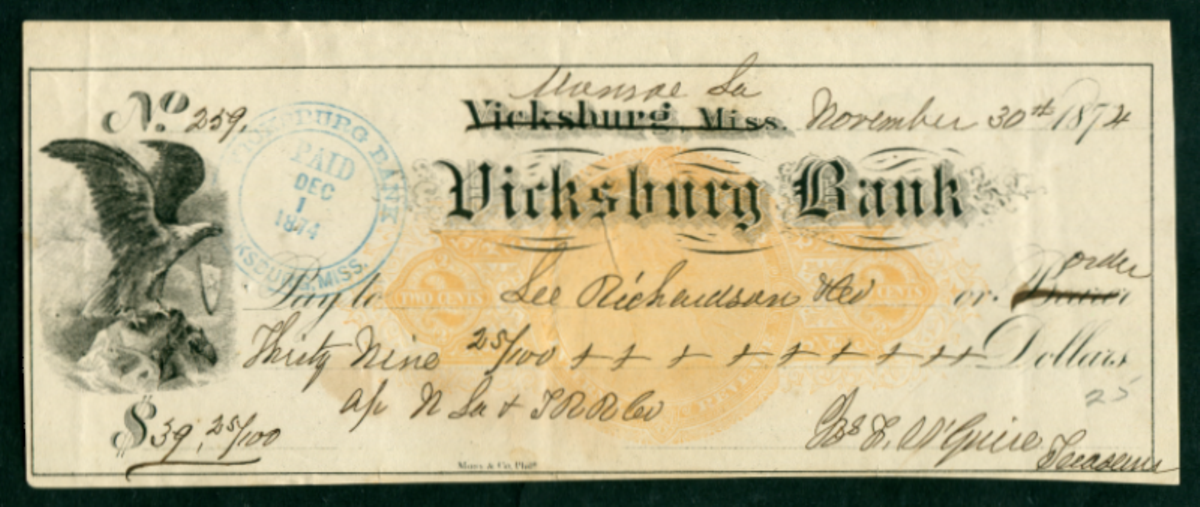 Monroe La
No. 259. Vicksburg, Miss. November 30th 1874
VICKSBURG BANK
PAID
DEC
1
1874
VICKSBURG, MISS.
Vicksburg Bank
TWO CENTS 2 2 CENTS
order
Pay to Lee Richardson & Co or Bearer
Thirty Nine 25/100 Dollars
25
a/c N La & T R R Co
$39.25/100 Jas. F. McGuire Treasurer